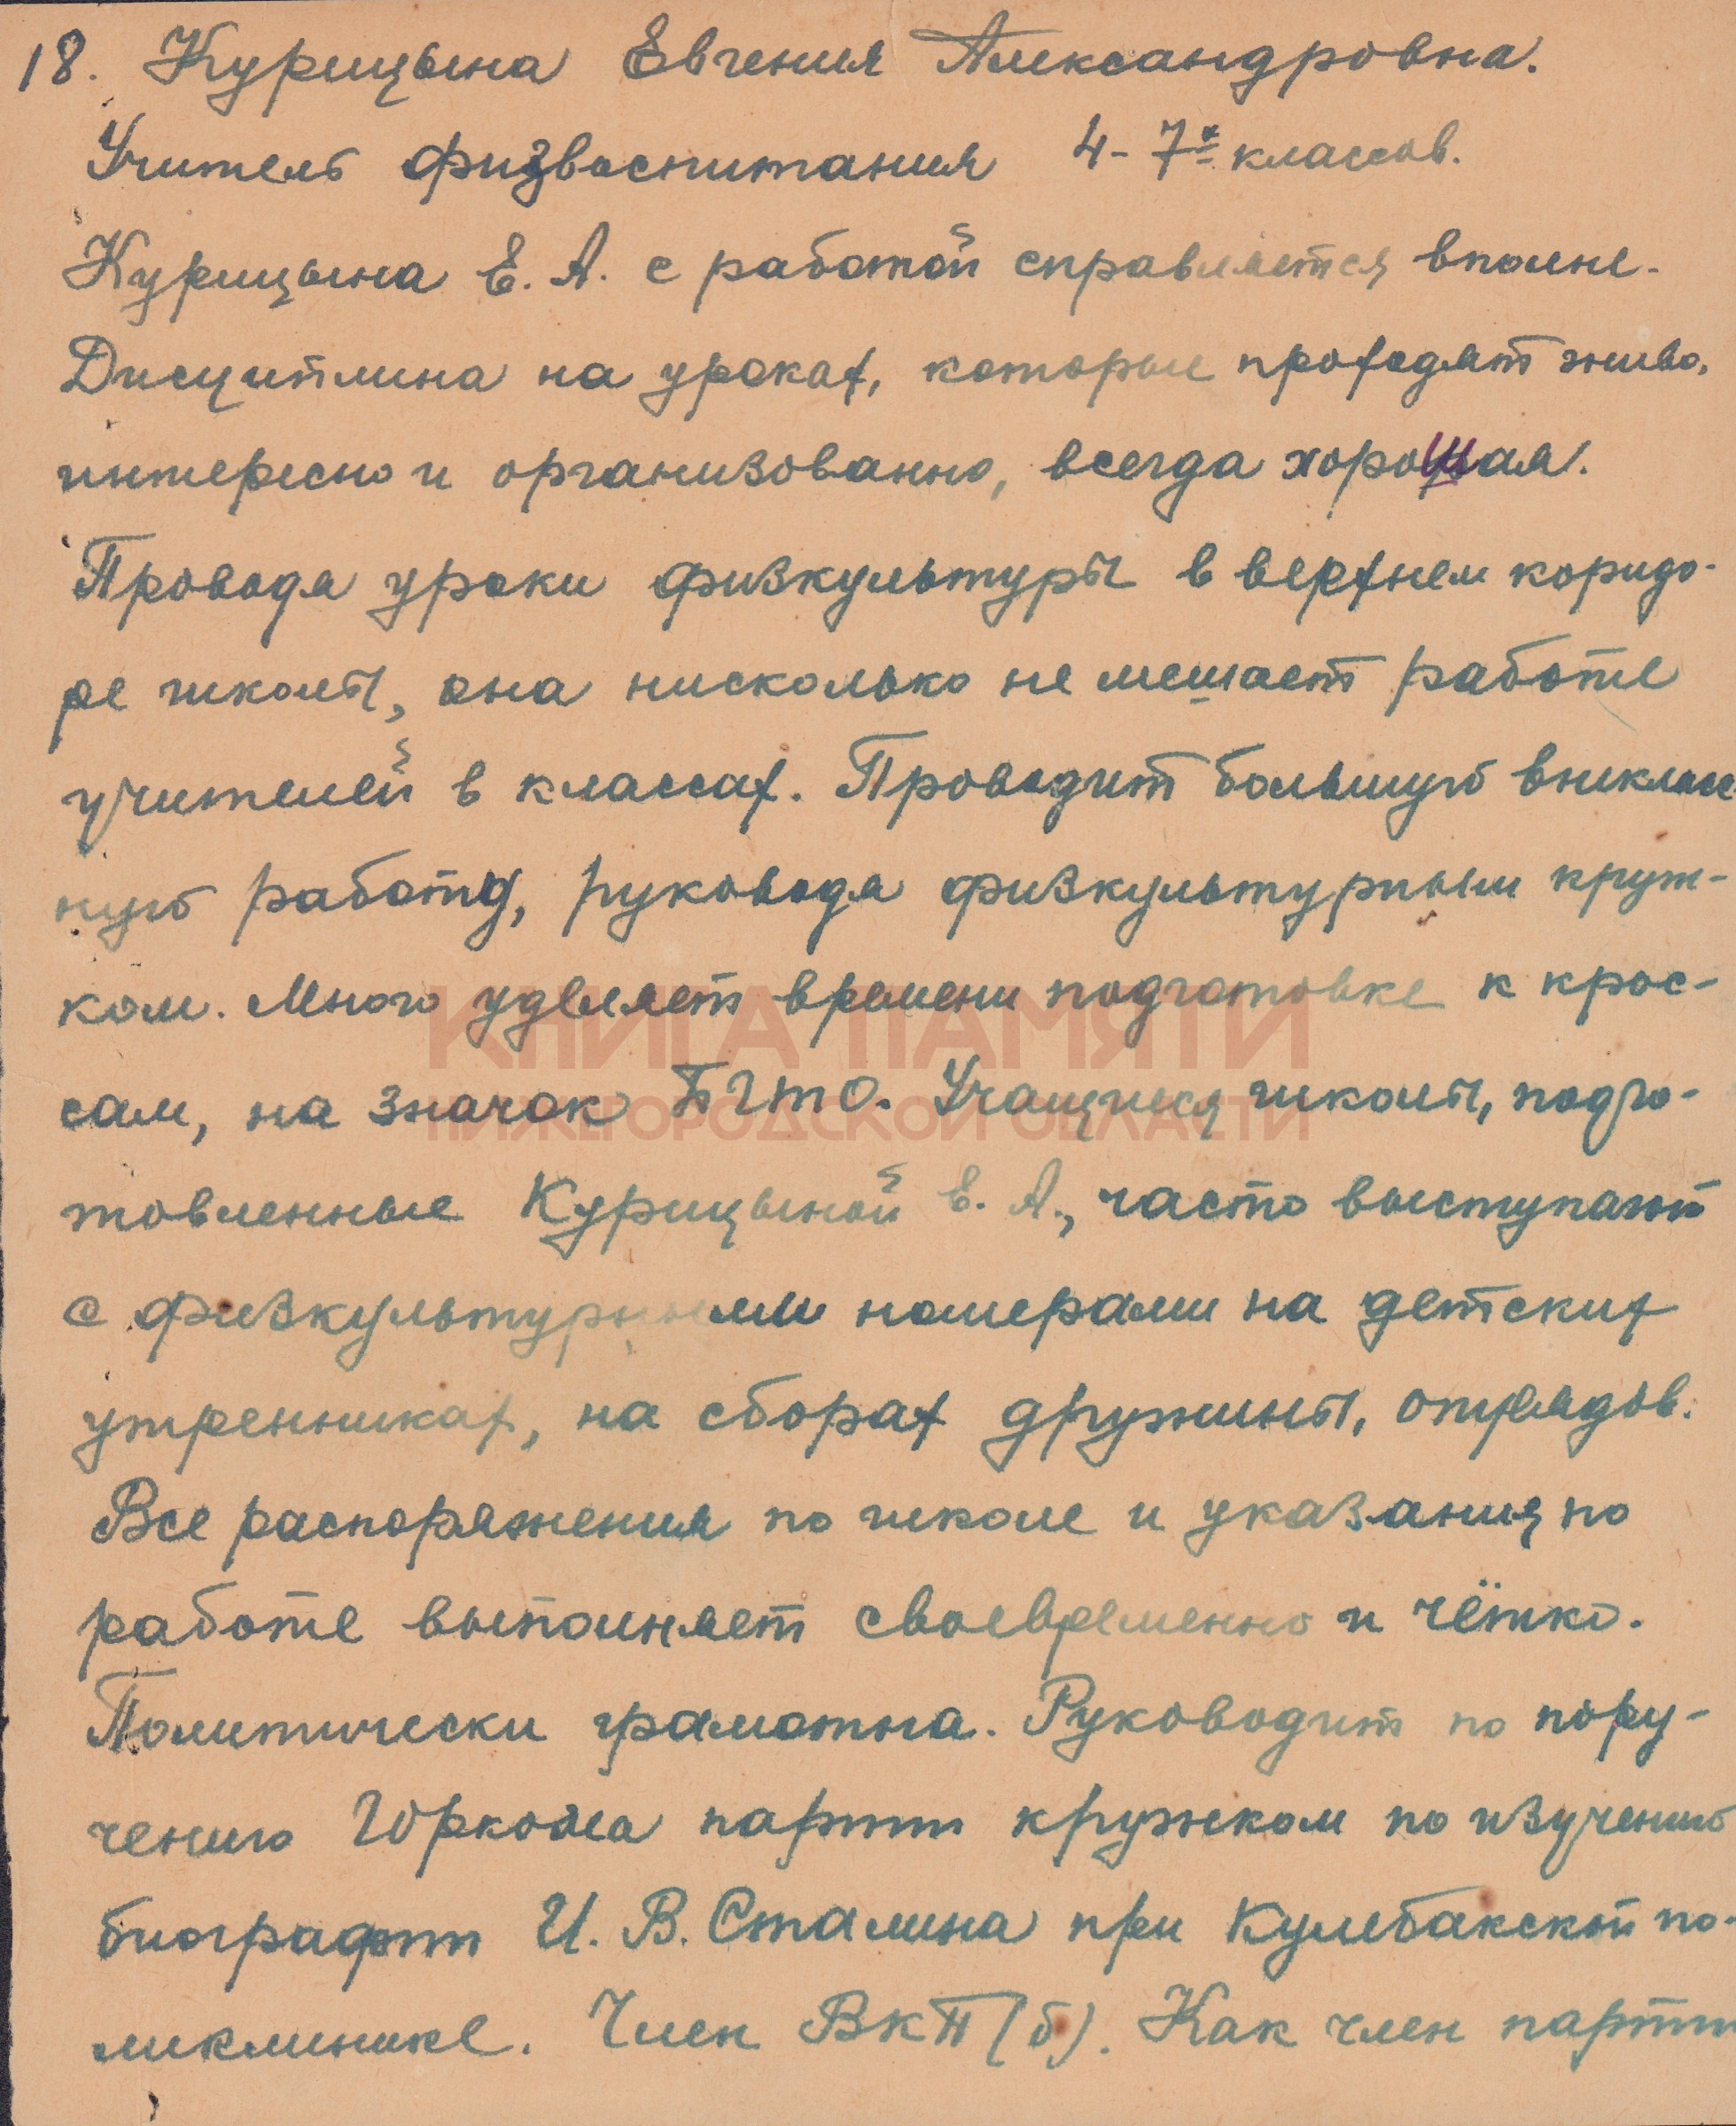 18. Курицына Евгения Александровна.
Учитель физвоспитания 4-7х классов.
Курицына Е. А. с работой справляется вполне.
Дисциплина на уроках, которые проходят живо,
интересно и организованно, всегда хорошая.
Проводя уроки физкультуры в верхнем коридо-
ре школы, она нисколько не мешает работе
учителей в классах. Проводит большую внекласс-
ную работу, руководя физкультурным круж-
ком. Много уделяет времени подготовке к крос-
КНИГА ПАМЯТИ
сам, на значок БГТО. Учащиеся школы, подго-
НИЖЕГОРОДСКОЙ ОБЛАСТИ
товленные Курицыной Е. А., часто выступают
с физкультурными номерами на детских
утренниках, на сборах дружины, отрядов.
Все распоряжения по школе и указания по
работе выполняет своевременно и чётко.
Политически грамотна. Руководит по пору-
чению Горкома партии кружком по изучению
биографии И. В. Сталина при Кулебакской по-
ликлинике. Член ВКП(б). Как член партии